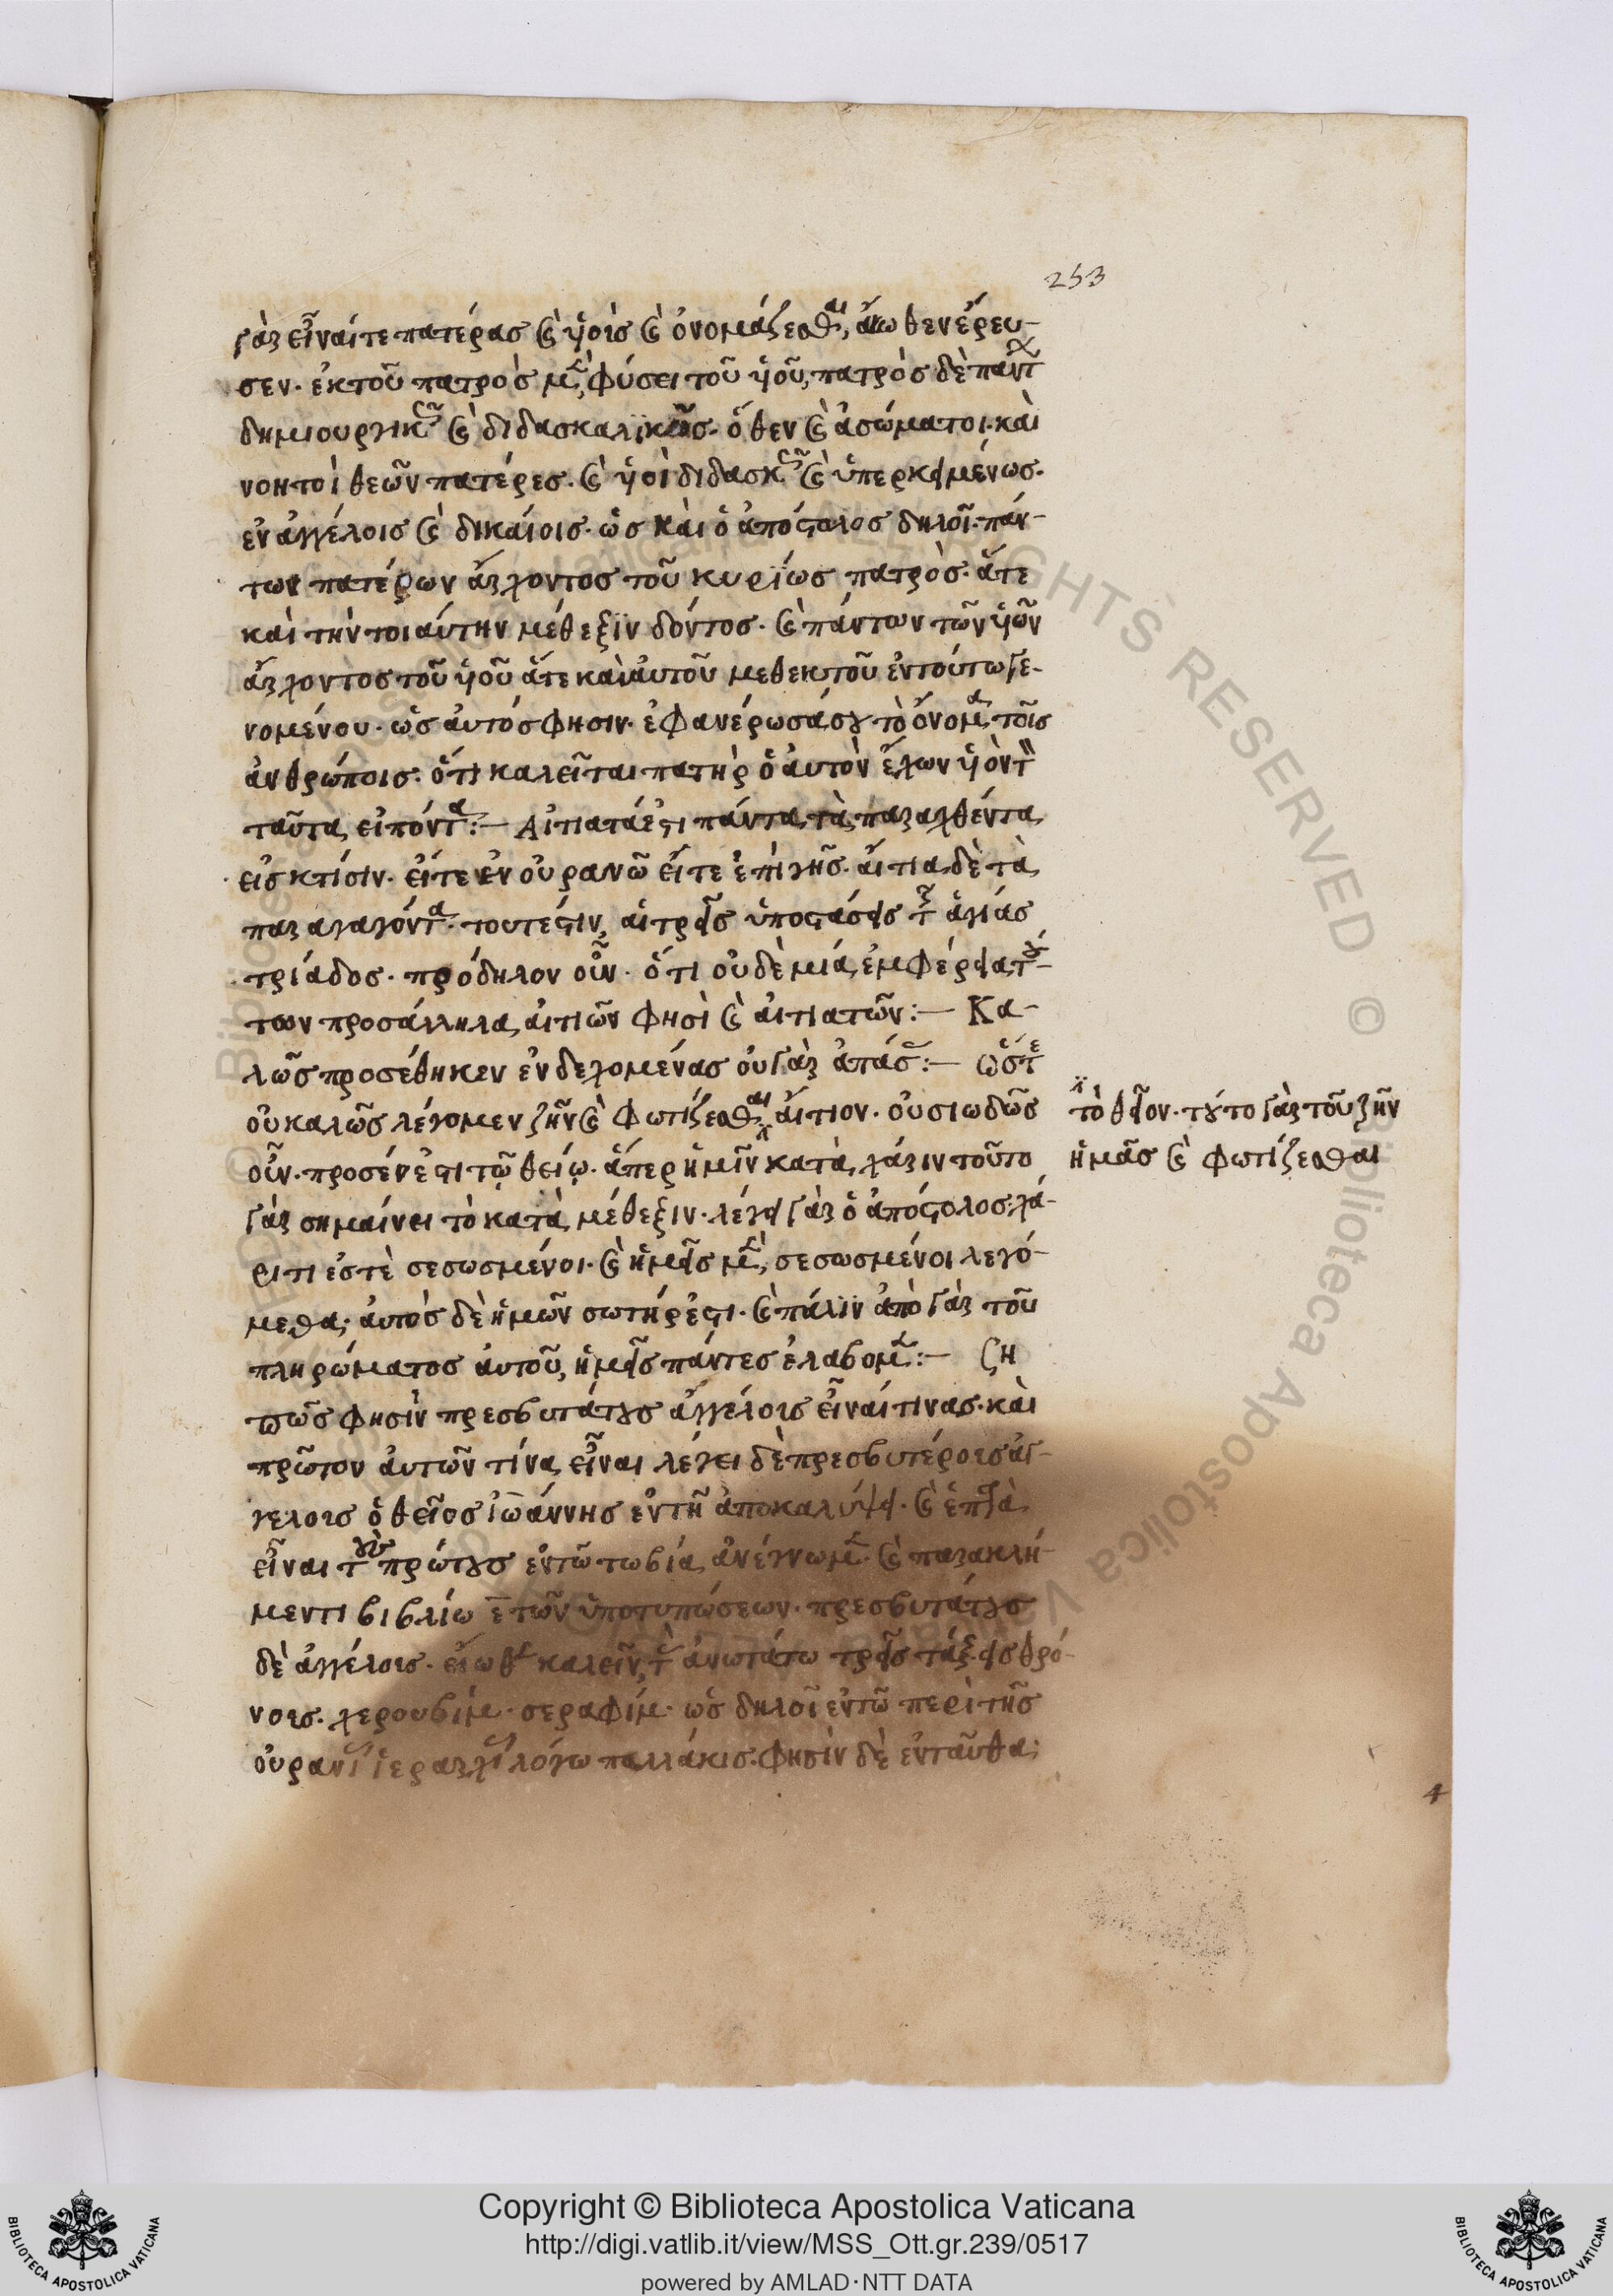 253
γὰρ εἶναί τε πατέρας καὶ υἱοὺς καὶ ὀνομάζεσθαι, ἄνωθεν ἔρευ-
σεν. ἐκ τοῦ πατρὸς μὲν, φύσει τοῦ υἱοῦ, πατρὸς δὲ πάντων
δημιουργικῶς καὶ διδασκαλϊκῶς. ὅθεν καὶ ἀσώματοι. καὶ
νοητοὶ θεῶν πατέρες. καὶ υἱοὶ διδασκαλικῶς καὶ ὑπερκειμένως.
ἐν ἀγγέλοις καὶ δικαίοις. ὡς καὶ ὁ ἀπόστολος δηλοῖ. πάν-
των πατέρων ἄρχοντος τοῦ κυρίως πατρὸς. ἅτε
καὶ τὴν τοιαύτην μέθεξϊν δόντος. καὶ πάντων τῶν υἱῶν
ἄρχοντος τοῦ υἱοῦ ἅτε καὶ αὐτοῦ μεθεκτοῦ ἐν τούτω γε-
νομένου. ὡς αὐτός φησιν. ἐφανέρωσά σου τὸ ὄνομα τοῖς
ἀνθρώποις. ὅτι καλεῖται πατὴρ ὁ αὐτὸν ἔχων υἱὸν τὸν
ταῦτα εἰπόντα:— Αἰτιατά ἐστι πάντα τὰ παραχθέντα
εἰς κτίσιν. εἴτε ἐν οὐρανῶ εἴτε ἐπὶ γῆς. αἴτια δὲ τὰ
παραγαγόντα. τουτέστιν, αἱ τρεῖς ὑποστάσεις τῆς ἁγίας
τριάδος. πρόδηλον οὖν. ὅτι οὐδεμία ἐμφέρεια τού-
των προσάλληλα αἰτιῶν φησὶ καὶ αἰτιατῶν:— Κα-
λῶς προσέθηκεν ἐνδεχομένας οὐ γὰρ ἁπάσας:— ὥστε
οὐ καλῶς λέγομεν ζῆν καὶ φωτίζεσθαι αἴτιον. οὐσιωδῶς
τὸ θεῖον. τοῦτο γὰρ τοῦ ζῆν
ἡμᾶς καὶ φωτίζεσθαι
οὖν. προσένεστι τῷ θείῳ. ἅπερ ἡμῖν κατὰ χάριν τοῦτο
γὰρ σημαίνει τὸ κατὰ μέθεξιν. λέγει γὰρ ὁ ἀπόστολος. χά-
ριτι ἐστὲ σεσωσμένοι. καὶ ἡμεῖς μὲν, σεσωσμένοι λεγό-
μεθα. αὐτὸς δὲ ἡμῶν σωτήρ ἐστι. καὶ πάλϊν ἀπὸ γὰρ τοῦ
πληρώματος αὐτοῦ, ἡμεῖς πάντες ἐλάβομεν:— ζη
πῶς φησὶν πρεσβυτάτους ἀγγέλους εἶναί τινας. καὶ
πρῶτον αὐτῶν τίνα εἶναι λέγει δὲ πρεσβυτέρους ἀγ-
γέλους ὁ θεῖος ἰωάννης ἐν τῆ ἀποκαλύψει. καὶ ἑπτὰ
εἶναι τοὺς πρώτους ἐν τῶ τωβία ἀνέγνωμεν. καὶ παρα κλή-
μεντι βιβλίω ε τῶν ὑποτυπώσεων. πρεσβυτάτους
δὲ ἀγγέλους. εἴωθε καλεῖν, τὰς ἀνωτάτω τρεῖς τάξεις θρό-
νους. χερουβίμ. σεραφίμ. ὡς δηλοῖ ἐν τῶ περὶ τῆς
οὐρανίου ἱεραρχίας λόγω πολλάκις. φησὶν δὲ ἐνταῦθα.
Copyright © Biblioteca Apostolica Vaticana
http://digi.vatlib.it/view/MSS_Ott.gr.239/0517
powered by AMLAD·NTT DATA